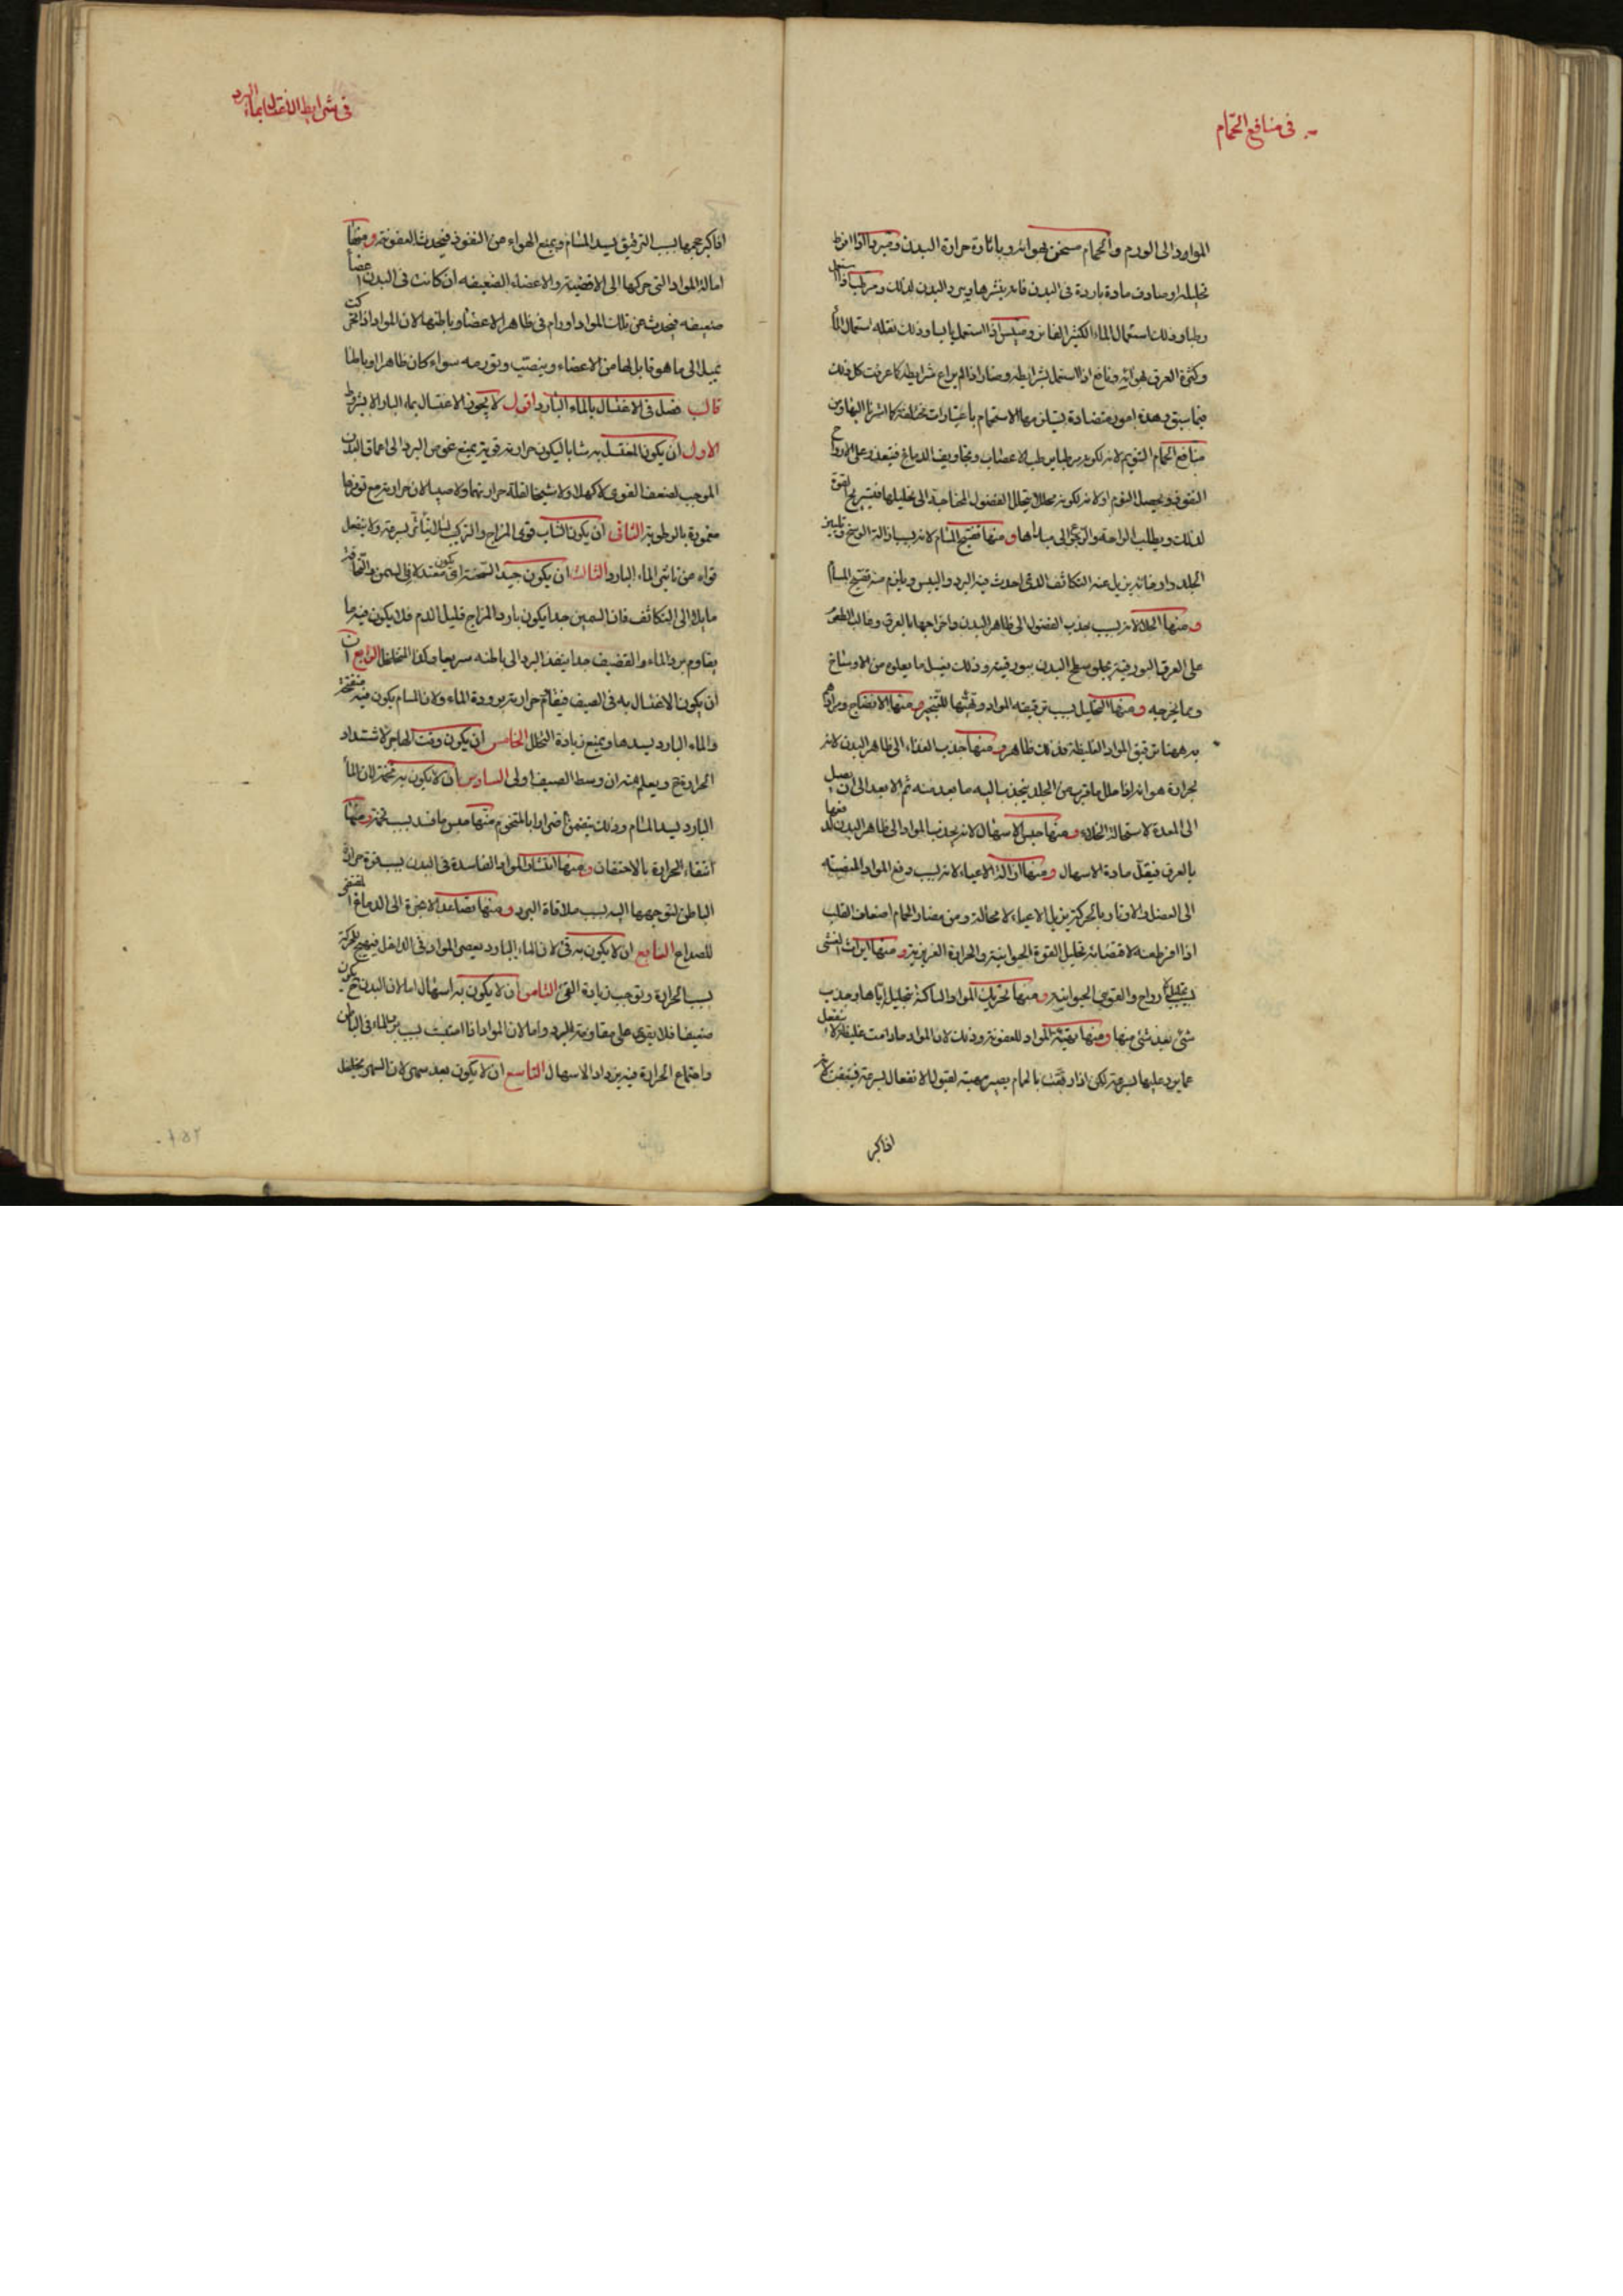 في منافع الحمام
المواد الى الورم والحمام مسخن بهوائه وباثارة حرارة البدن ومبرد اذا افرط
تحليله او صادف مادة باردة في البدن فانه ينشرها ويبرد البدن لذلك ومرطب اذا استعمل
رطبا وذلك استعمال الماء الكثير الفاتر وميبس اذا استعمل يابسا وذلك بقلة استعمال الماء
وكثرة العرق بهوائه ونافع اذا استعمل بشرايطه وضار اذا لم يراع شرايطه كما عرفت كل ذلك
فيما سبق وهذه امور متضادة يستلزمها الاستحمام باعتبارات مختلفة كما اشرنا اليها ومن
منافع الحمام التنويم لانه لكونه مرطبا يرطب الاعصاب وتجاويف الدماغ فيتعذر على الارواح
النفوذ ويحصل النوم او لانه لكونه محللا يتحلل الفضول المحتاجة الى تحليلها فيستريح القوة
لذلك ويطلب الراحة والرجوع الى مباديها ومنها تفتيح المسام لانه بسبب ازالة الوسخ وتليين
الجلد وارخائه يزيل عنه التكاثف الذي احدث فيه البرد واليبس ويلزم منه تفتيح المسام
ومنها الجلاء لانه بسبب جذب الفضول الى ظاهر البدن واخراجها بالعرق وغالب الطعم
على العرق البورقية يجلو سطح البدن ببورقيته وذلك بغسل ما يعلوه من الاوساخ
ومما يخرجه ومنها التحليل بسبب ترقيقه المواد وتهيئها للتبخر ومنها الانضاج ومراده
به ههنا ترقيق المواد الغليظة وذلك ظاهر ومنها جذب الغذاء الى ظاهر البدن لانه
بحرارة هوائه اذا حلل ما قرب من الجلد ينجذب اليه ما بعد منه ثم الابعد الى ان يصل
الى المعدة لاستحالة الخلاء ومنها حبس الاسهال لانه يجذب المواد الى ظاهر البدن ودفعها
بالعرق فيقل مادة الاسهال ومنها ازالة الاعياء لانه بسبب دفع المواد المنصبة
الى العضل والاوتار بالحركة يزيل الاعياء لا محالة ومن مضار الحمام اضعاف القلب
اذا افرط فيه لاقتضائه تحليل القوة الحيوانية والحرارة الغريزية ومنها ايراث الغشي
بسبب تحليل الارواح والقوى الحيوانية ومنها تحريك المواد الساكنة بتحليل اياها وجذب
شيء بعد شيء منها ومنها تهيئة المواد للعفونة وذلك لان المواد ما دامت غليظة لا ينفعل
عما يرد عليها بسرعة لكن اذا رققت بالحمام يصير مهيئة لقبول الانفعال بسرعة فيتعفن
اذا كبر
في شرايط الاغتسال بماء البرد
اذا كبر حجمها بسبب الترقيق يسد المسام ويمنع الهواء من النفوذ فيحدث العفونة ومنها
امالة المواد التي حركها الى الافضية والاعضاء الضعيفه ان كانت في البدن اعضاء
ضعيفه فيحدث عن تلك المواد اورام في ظاهر الاعضاء وباطنها لان المواد اذا تحركت
تميل الى ما هو قابل لها من الاعضاء وينصب وتورمه سواء كان ظاهرا او باطنا
قال فصل في الاغتسال بالماء البارد اقول لا يجوز الاغتسال بماء البارد الا بشروط
الاول ان يكون المغتسل به شابا ليكون حرارته قوية يمنع غوص البرد الى اعماق البدن
الموجب لضعف القوى لا كهلا ولا شيخا لقلة حرارتهما ولا صبيا لان حرارته مع توفرها
مغمورة بالرطوبة الثاني ان يكون الشاب قوى المزاج والتركيب لئلا يتأثر بسرعة ولا ينفعل
قواه من تاثير الماء البارد الثالث ان يكون جيد السحنة اي يكون معتدلا في السمن والنحافة
مايلا الى التكاثف فان السمين جدا يكون بارد المزاج قليل الدم فلا يكون فيه ما
يقاوم برد الماء والقضيف جدا ينفذ البرد الى باطنه سريعا وكذا المتخلخل الرابع
ان يكون الاغتسال به في الصيف فيقاوم حرارته برودة الماء ولان المسام يكون فيه منفتحة
والماء البارد يسدها ويمنع زيادة التحلل الخامس ان يكون وقت الهاجرة لاشتداد
الحرارة ح ويعلم منه ان وسط الصيف اولى السادس ان لا يكون به تخمة لان الماء
البارد يسد المسام وذلك يتضمن اضرارا بالمتخم منها حبس ما فسد بسبب تخمة ومنها
انتفاء الحرارة بالاحتقان ومنها انتشار المواد الفاسدة في البدن بسبب قوة حرارة
الباطن لتوجهها اليه بسبب ملاقاة البرد ومنها تصاعد الابخرة الى الدماغ المقتضي
للصداع السابع ان لا يكون به قئ لان الماء البارد يعصى المواد في الداخل فيهيج للحركة
بسبب الحرارة وتوجب زيادة القئ الثامن ان لا يكون به اسهال اما لان البدن ح يكون
ضعيفا فلا يقوى على مقاومة البرد واما لان المواد اذا انصبت بسبب برد الماء في الباطن
واجتماع الحرارة فيه يزداد الاسهال التاسع ان لا يكون بعد سهر لان السهر يتخلخل